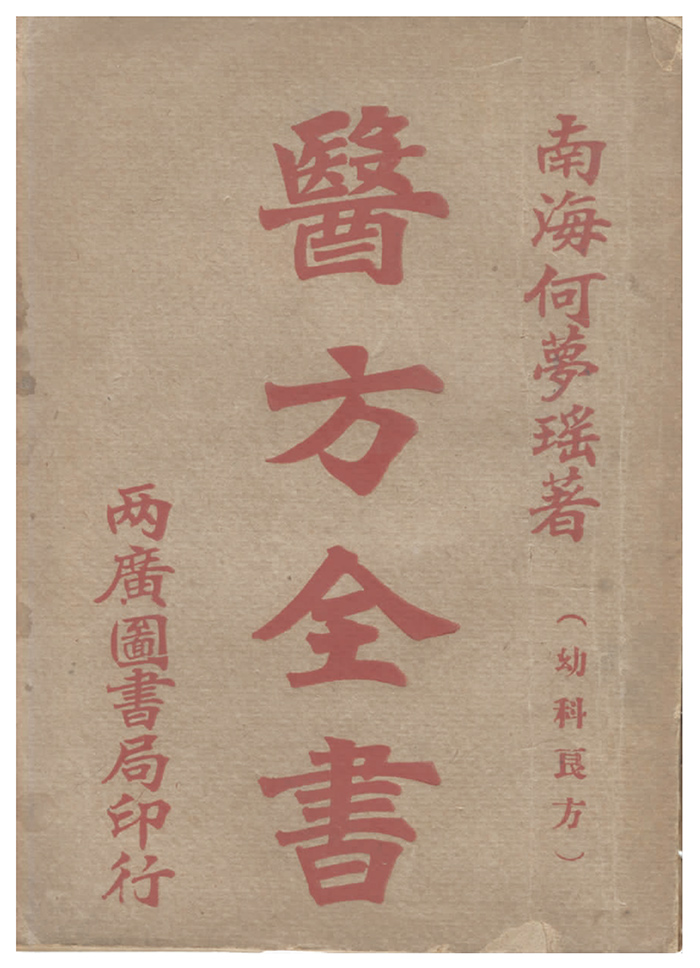 南海何夢瑶著（幼科良方）
醫方全書
两廣圖書局印行